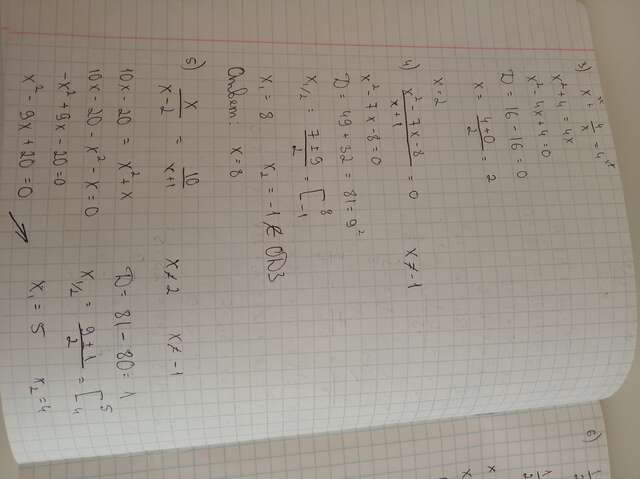 3) x + 4/x = 4
x² + 4 = 4x
x² - 4x + 4 = 0
D = 16 - 16 = 0
x = (4 + 0)/2 = 2
x = 2
4) (x² - 7x - 8)/(x + 1) = 0 x ≠ -1
x² - 7x - 8 = 0
D = 49 + 32 = 81 = 9²
x₁/₂ = (7 ± 9)/2 = [8 -1
x₁ = 8 x₂ = -1 ∉ ОДЗ
Ответ: x = 8
5) x/(x - 2) = 10/(x + 1) x ≠ 2 x ≠ -1
10x - 20 = x² + x
10x - 20 - x² - x = 0
-x² + 9x - 20 = 0
x² - 9x + 20 = 0
D = 81 - 80 = 1
x₁/₂ = (9 ± 1)/2 = [5 4
x₁ = 5 x₂ = 4
6)